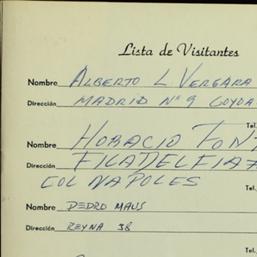 Lista de Visitantes
Nombre ALBERTO L VERGARA
Dirección MADRID Nº 9 COYOA
Tel.
Nombre HORACIO FONT
Dirección FILADELFIA
COL NAPOLES
Tel.
Nombre PEDRO MAUS
Dirección REYNA 38
Tel.
Nombre